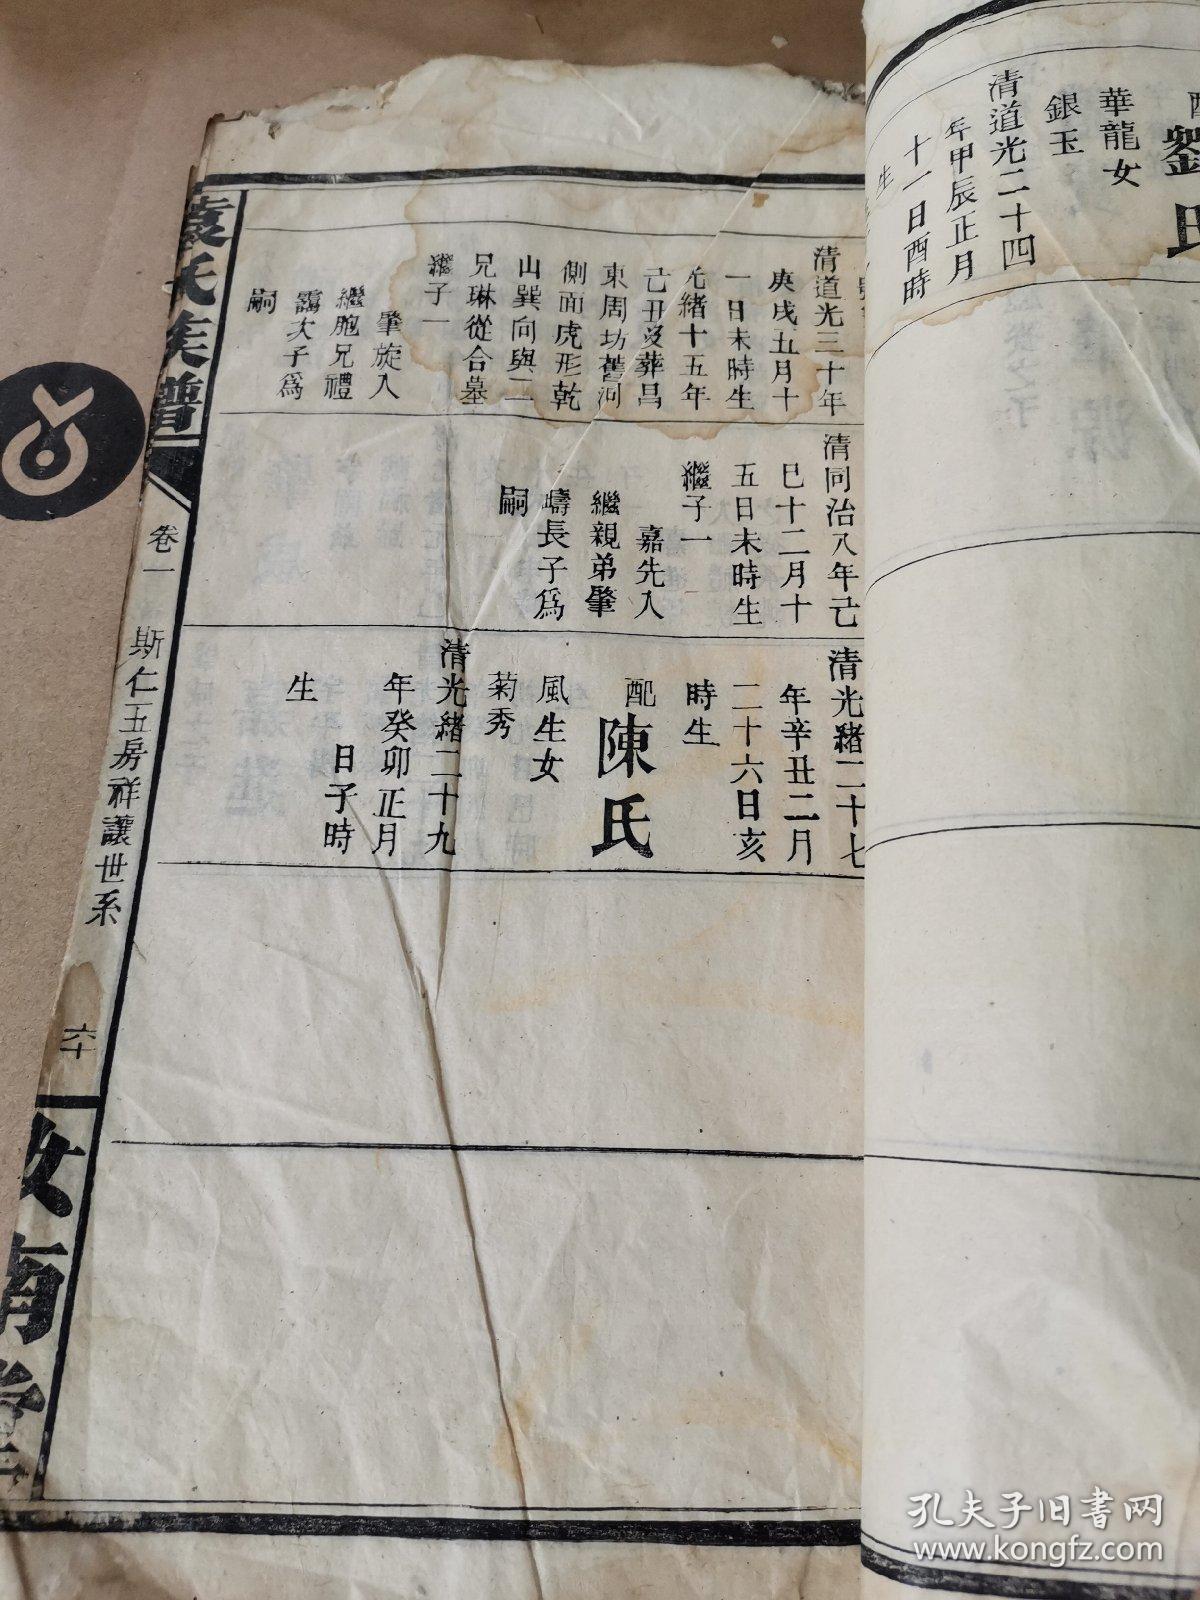 劉氏
華龍女
銀玉
清道光二十四
年甲辰正月
十一日酉時
生
清道光三十年
庚戌五月十
一日未時生
光緒十五年
己丑沒葬昌
東周坊舊河
側面虎形乾
山巽向與二
兄琳從合墓
繼子一
肇旋入
繼胞兄禮
靄次子為
嗣
清同治八年己
巳十二月十
五日未時生
繼子一
嘉先入
繼親弟肇
疇長子為
嗣
清光緒二十七
年辛丑二月
二十六日亥
時生
配
陳氏
風生女
菊秀
清光緒二十九
年癸卯正月
日子時
生
袁氏族譜
卷一
斯仁五房祥讓世系
六十
汝南堂
孔夫子旧书网
www.kongfz.com